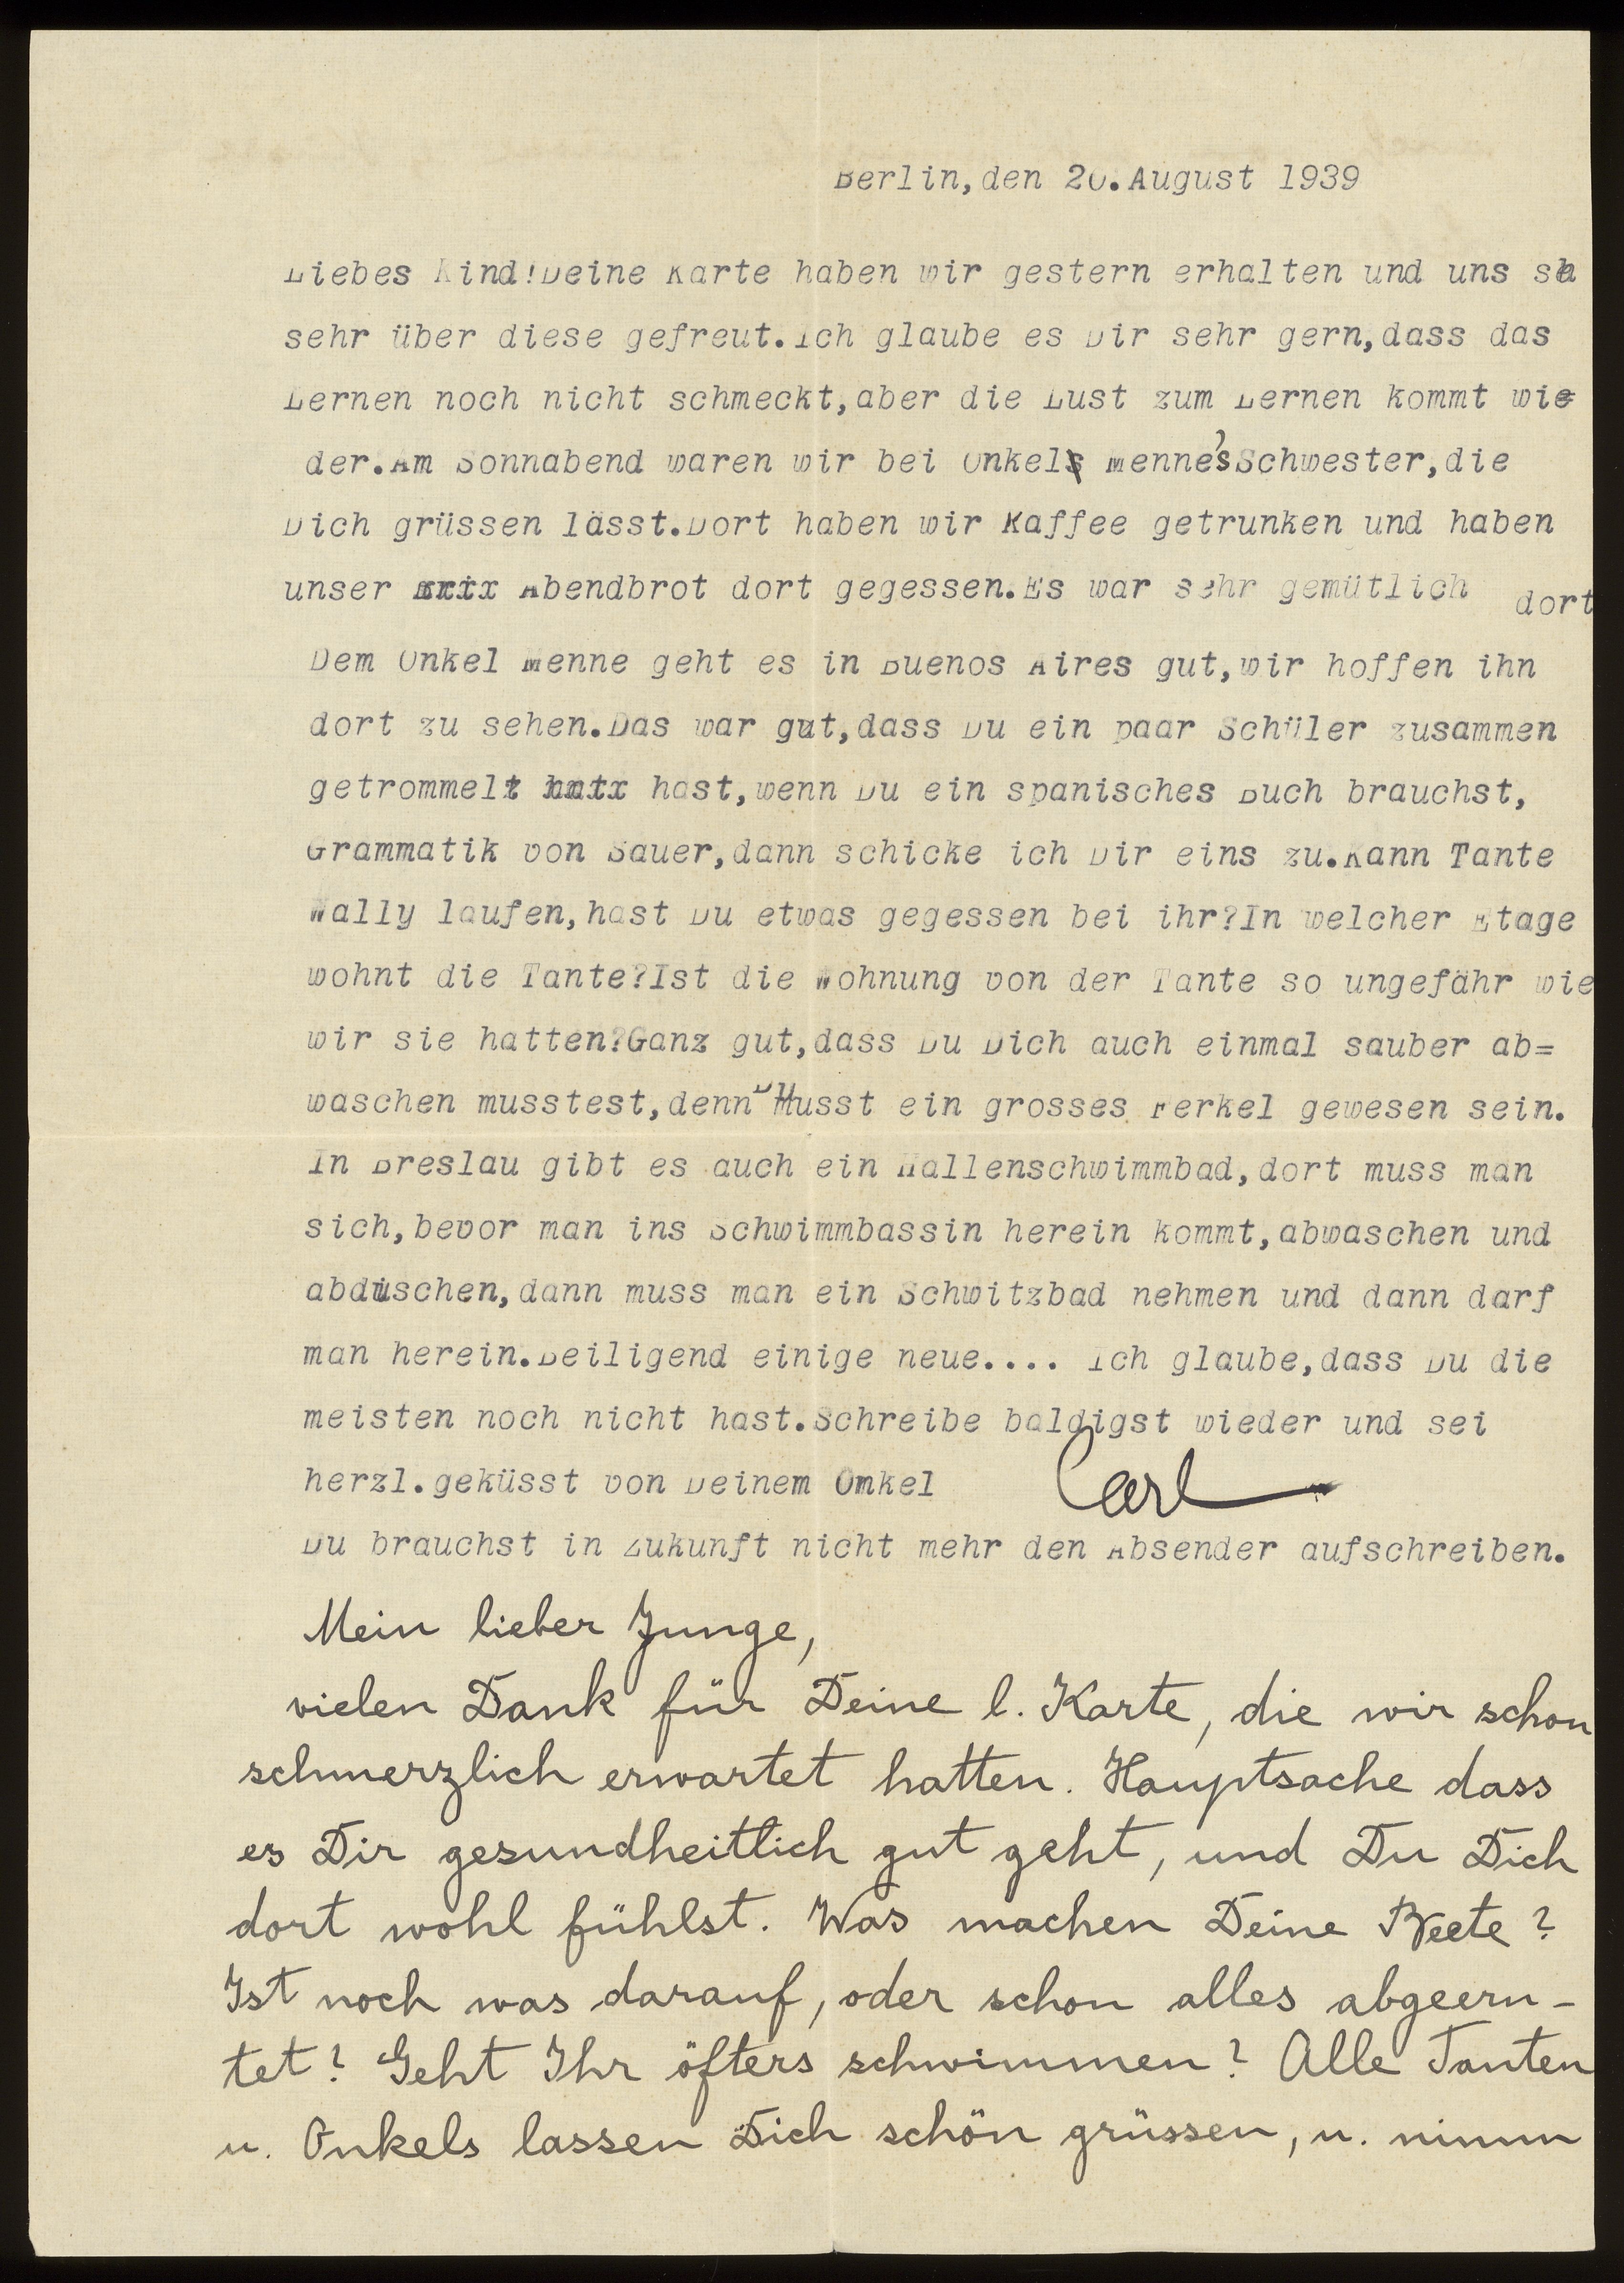 Berlin,den 20.August 1939
Liebes Kind!Deine Karte haben wir gestern erhalten und uns
sehr über diese gefreut.Ich glaube es Dir sehr gern,dass das
Lernen noch nicht schmeckt,aber die Lust zum Lernen kommt wie
der.Am Sonnabend waren wir bei Onkel Menne's Schwester,die
Dich grüssen lässt.Dort haben wir Kaffee getrunken und haben
unser Abendbrot dort gegessen.Es war sehr gemütlich dort
Dem Onkel Menne geht es in Buenos Aires gut,wir hoffen ihn
dort zu sehen.Das war gut,dass Du ein paar Schüler zusammen
getrommelt hast,wenn Du ein spanisches Buch brauchst,
Grammatik von Sauer,dann schicke ich Dir eins zu.Kann Tante
Wally laufen,hast Du etwas gegessen bei ihr?In welcher Etage
wohnt die Tante?Ist die Wohnung von der Tante so ungefähr wie
wir sie hatten?Ganz gut,dass Du Dich auch einmal sauber ab=
waschen musstest,denn Du musst ein grosses Ferkel gewesen sein.
In Breslau gibt es auch ein Hallenschwimmbad,dort muss man
sich,bevor man ins Schwimmbassin herein kommt,abwaschen und
abduschen,dann muss man ein Schwitzbad nehmen und dann darf
man herein.Beiligend einige neue.... Ich glaube,dass Du die
meisten noch nicht hast.Schreibe baldigst wieder und sei
herzl.geküsst von Deinem Omkel Carl
Du brauchst in Zukunft nicht mehr den Absender aufschreiben.
Mein lieber Junge,
vielen Dank für Deine l. Karte, die wir schon
schmerzlich erwartet hatten. Hauptsache dass
es Dir gesundheitlich gut geht, und Du Dich
dort wohl fühlst. Was machen Deine Beete?
Ist noch was darauf, oder schon alles abgeern-
tet? Geht Ihr öfters schwimmen? Alle Tanten
u. Onkels lassen Dich schön grüssen, u. nimm